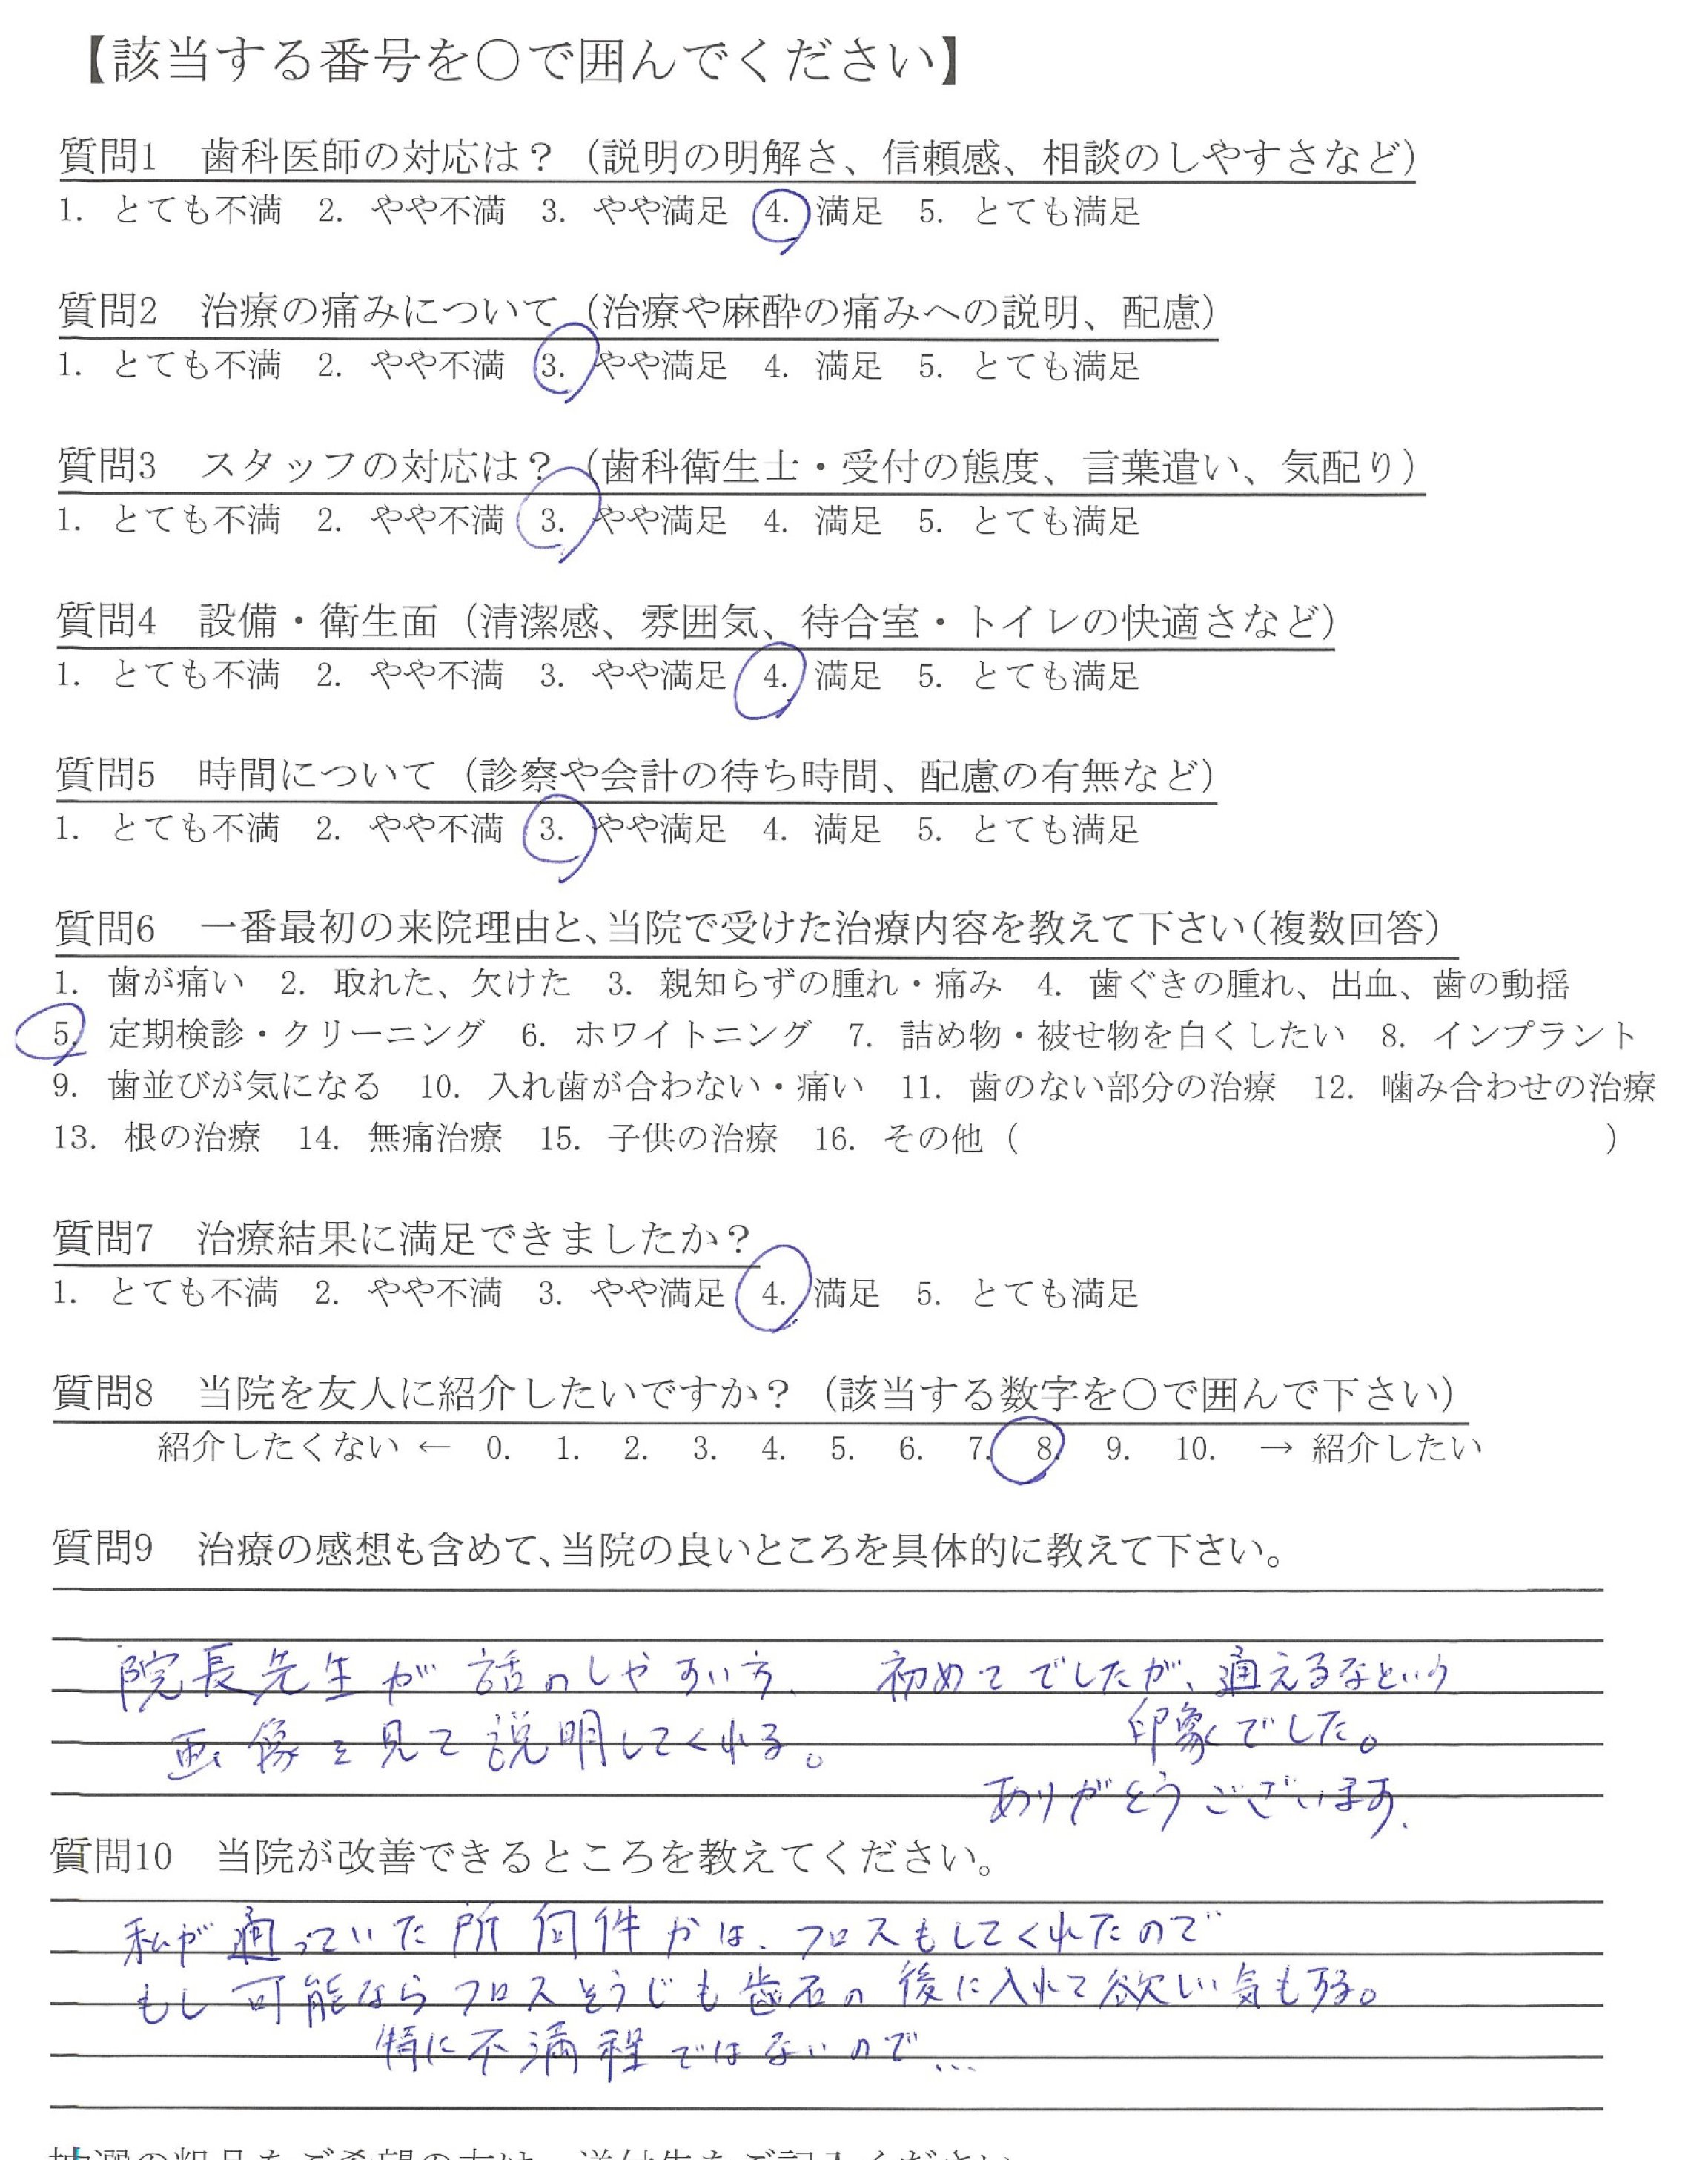 【該当する番号を〇で囲んでください】
質問1 歯科医師の対応は？（説明の明解さ、信頼感、相談のしやすさなど）
1. とても不満 2. やや不満 3. やや満足 4. 満足 5. とても満足
質問2 治療の痛みについて（治療や麻酔の痛みへの説明、配慮）
1. とても不満 2. やや不満 3. やや満足 4. 満足 5. とても満足
質問3 スタッフの対応は？（歯科衛生士・受付の態度、言葉遣い、気配り）
1. とても不満 2. やや不満 3. やや満足 4. 満足 5. とても満足
質問4 設備・衛生面（清潔感、雰囲気、待合室・トイレの快適さなど）
1. とても不満 2. やや不満 3. やや満足 4. 満足 5. とても満足
質問5 時間について（診察や会計の待ち時間、配慮の有無など）
1. とても不満 2. やや不満 3. やや満足 4. 満足 5. とても満足
質問6 一番最初の来院理由と、当院で受けた治療内容を教えて下さい（複数回答）
1. 歯が痛い 2. 取れた、欠けた 3. 親知らずの腫れ・痛み 4. 歯ぐきの腫れ、出血、歯の動揺
5. 定期検診・クリーニング 6. ホワイトニング 7. 詰め物・被せ物を白くしたい 8. インプラント
9. 歯並びが気になる 10. 入れ歯が合わない・痛い 11. 歯のない部分の治療 12. 噛み合わせの治療
13. 根の治療 14. 無痛治療 15. 子供の治療 16. その他（ ）
質問7 治療結果に満足できましたか？
1. とても不満 2. やや不満 3. やや満足 4. 満足 5. とても満足
質問8 当院を友人に紹介したいですか？（該当する数字を〇で囲んで下さい）
紹介したくない ← 0. 1. 2. 3. 4. 5. 6. 7. 8. 9. 10. → 紹介したい
質問9 治療の感想も含めて、当院の良いところを具体的に教えて下さい。
院長先生が話のしやすい方、
画像を見て説明してくれる。
初めてでしたが、通えるなという
印象でした。
ありがとうございます。
質問10 当院が改善できるところを教えてください。
私が通っていた所何件かは、フロスもしてくれたので
もし可能ならフロスそうじも歯石の後に入れて欲しい気もする。
特に不満程ではないので…
抽選の粗品をご希望の方は、送付先をご記入ください